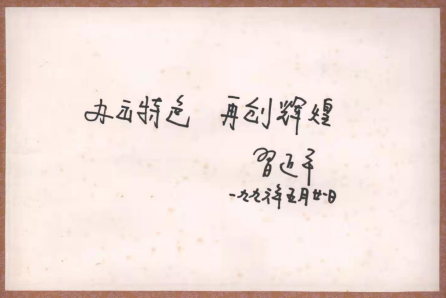 办出特色 再创辉煌
習近平
一九九六年五月廿一日